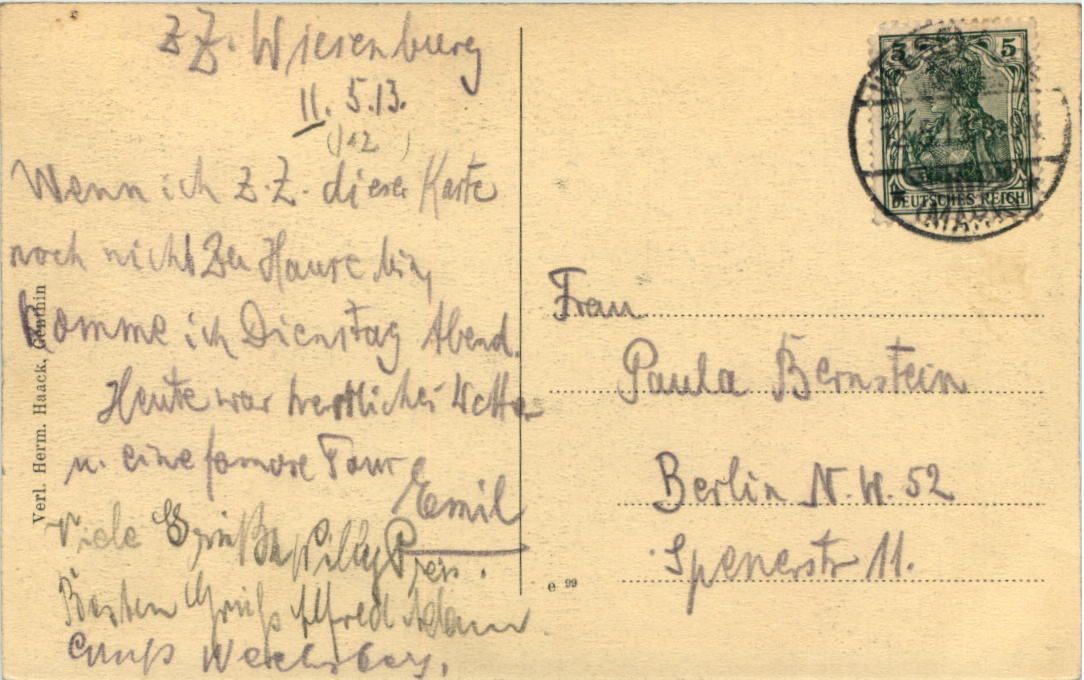 z. Z. Wiesenburg
11. 5. 13.
(12)
Wenn ich z. Z. dieser Karte
noch nicht zu Hause bin,
komme ich Dienstag Abend.
Heute war herrliches Wetter
u. eine famose Tour
Emil
Viele Grüße Willy
Besten Gruß Alfred Adam
Gruß
Verl. Herm. Haack, Genthin
5 5
DEUTSCHES REICH
(MARK)
Frau
Paula Bernstein
Berlin N. W. 52
Spenerstr 11.
e 99